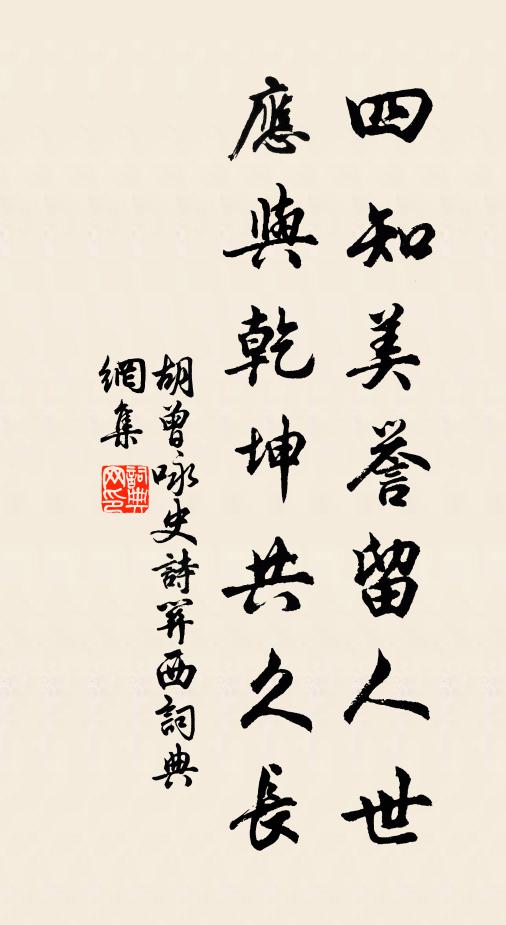 四知美譽留人世
應與乾坤共久長
胡曾咏史詩關西詞典
網集
詞典
网印